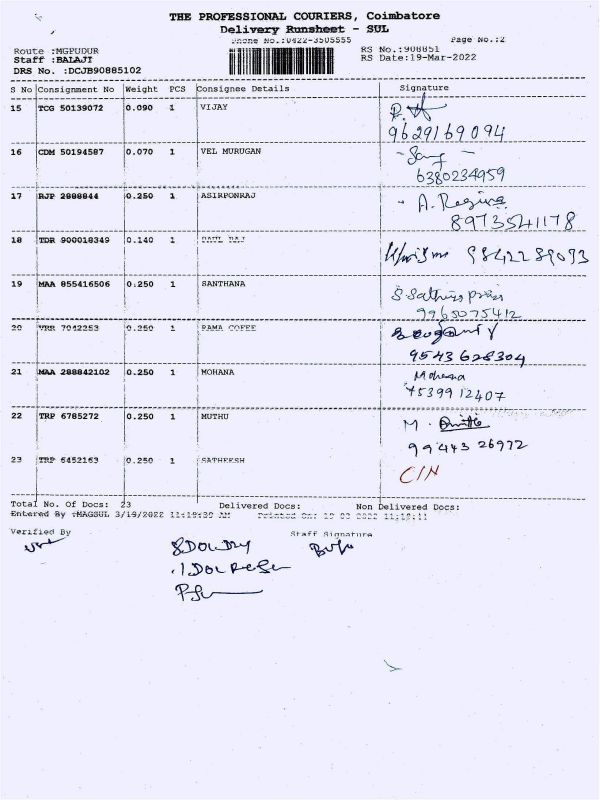 THE PROFESSIONAL COURIERS, Coimbatore
Delivery Runsheet - SUL
Phone No.:0422-3505555 Page No.:2
Route :MGPUDUR RS No.:908851
Staff :BALAJI RS Date:19-Mar-2022
DRS No. :DCJB90885102
S No Consignment No Weight PCS Consignee Details Signature
15 TCG 50139072 0.090 1 VIJAY
9629169094
16 CDM 50194587 0.070 1 VEL MURUGAN
6380234959
17 RJP 2888844 0.250 1 ASIRPONRAJ A. Regina
8973541178
18 TDR 900018349 0.140 1 PAUL RAJ 9842289093
19 MAA 855416506 0.250 1 SANTHANA
9965075412
20 VRR 7042253 0.250 1 RAMA COFEE
9543628304
21 MAA 288842102 0.250 1 MOHANA Mohana
7539912407
22 TRP 6785272 0.250 1 MUTHU M.
9944326972
23 TRP 6452163 0.250 1 SATHEESH
C/N
Total No. Of Docs: 23 Delivered Docs: Non Delivered Docs:
Entered By :MAGSUL 3/19/2022 11:19:39 AM Printed On: 19 03 2022 11:19:11
Verified By Staff Signature